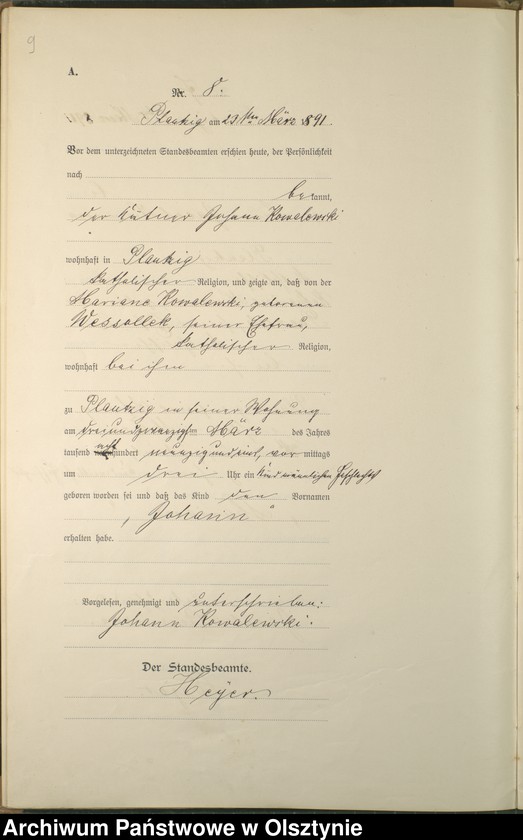 9
A.
Nr. 8.
Plautzig am 23ten März 1891.
Vor dem unterzeichneten Standesbeamten erschien heute, der Persönlichkeit
nach
bekannt,
der Kätner Johann Kowalewski
wohnhaft in Plautzig
katholischer Religion, und zeigte an, daß von der
Mariane Kowalewski, geborenen
Wessollek, seiner Ehefrau,
katholischer Religion,
wohnhaft bei ihm
zu Plautzig in seiner Wohnung
am dreiundzwanzigsten März des Jahres
tausend acht hundert neunzig und eins, vor mittags
um drei Uhr ein Kind männlichen Geschlechts
geboren worden sei und daß das Kind den Vornamen
„Johann“
erhalten habe.
Vorgelesen, genehmigt und unterschrieben:
Johann Kowalewski.
Der Standesbeamte.
Heyer.
Archiwum Państwowe w Olsztynie